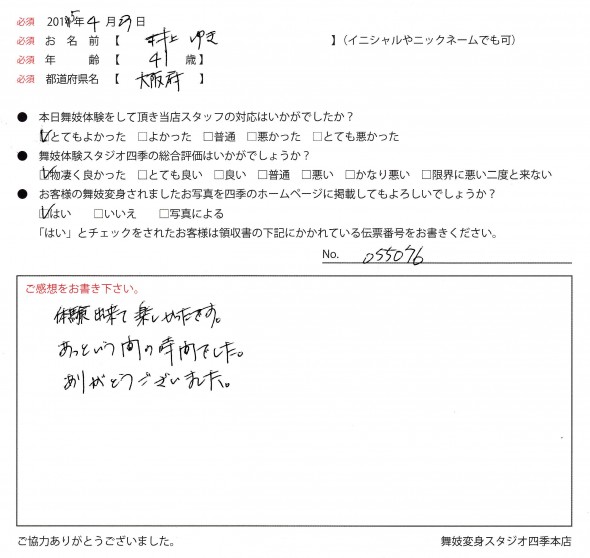 必須 2015年 4 月 23 日
必須 お名前【 井上 ゆき 】(イニシャルやニックネームでも可)
必須 年齢【 41 歳】
必須 都道府県名【 大阪府 】
● 本日舞妓体験をして頂き当店スタッフの対応はいかがでしたか?
☑とてもよかった □よかった □普通 □悪かった □とても悪かった
● 舞妓体験スタジオ四季の総合評価はいかがでしょうか?
☑物凄く良かった □とても良い □良い □普通 □悪い □かなり悪い □限界に悪い二度と来ない
● お客様の舞妓変身されましたお写真を四季のホームページに掲載してもよろしいでしょうか?
☑はい □いいえ □写真による
「はい」とチェックをされたお客様は領収書の下記にかかれている伝票番号をお書きください。
No. 055076
ご感想をお書き下さい。
体験出来て楽しかったです。
あっという間の時間でした。
ありがとうございました。
ご協力ありがとうございました。 舞妓変身スタジオ四季本店